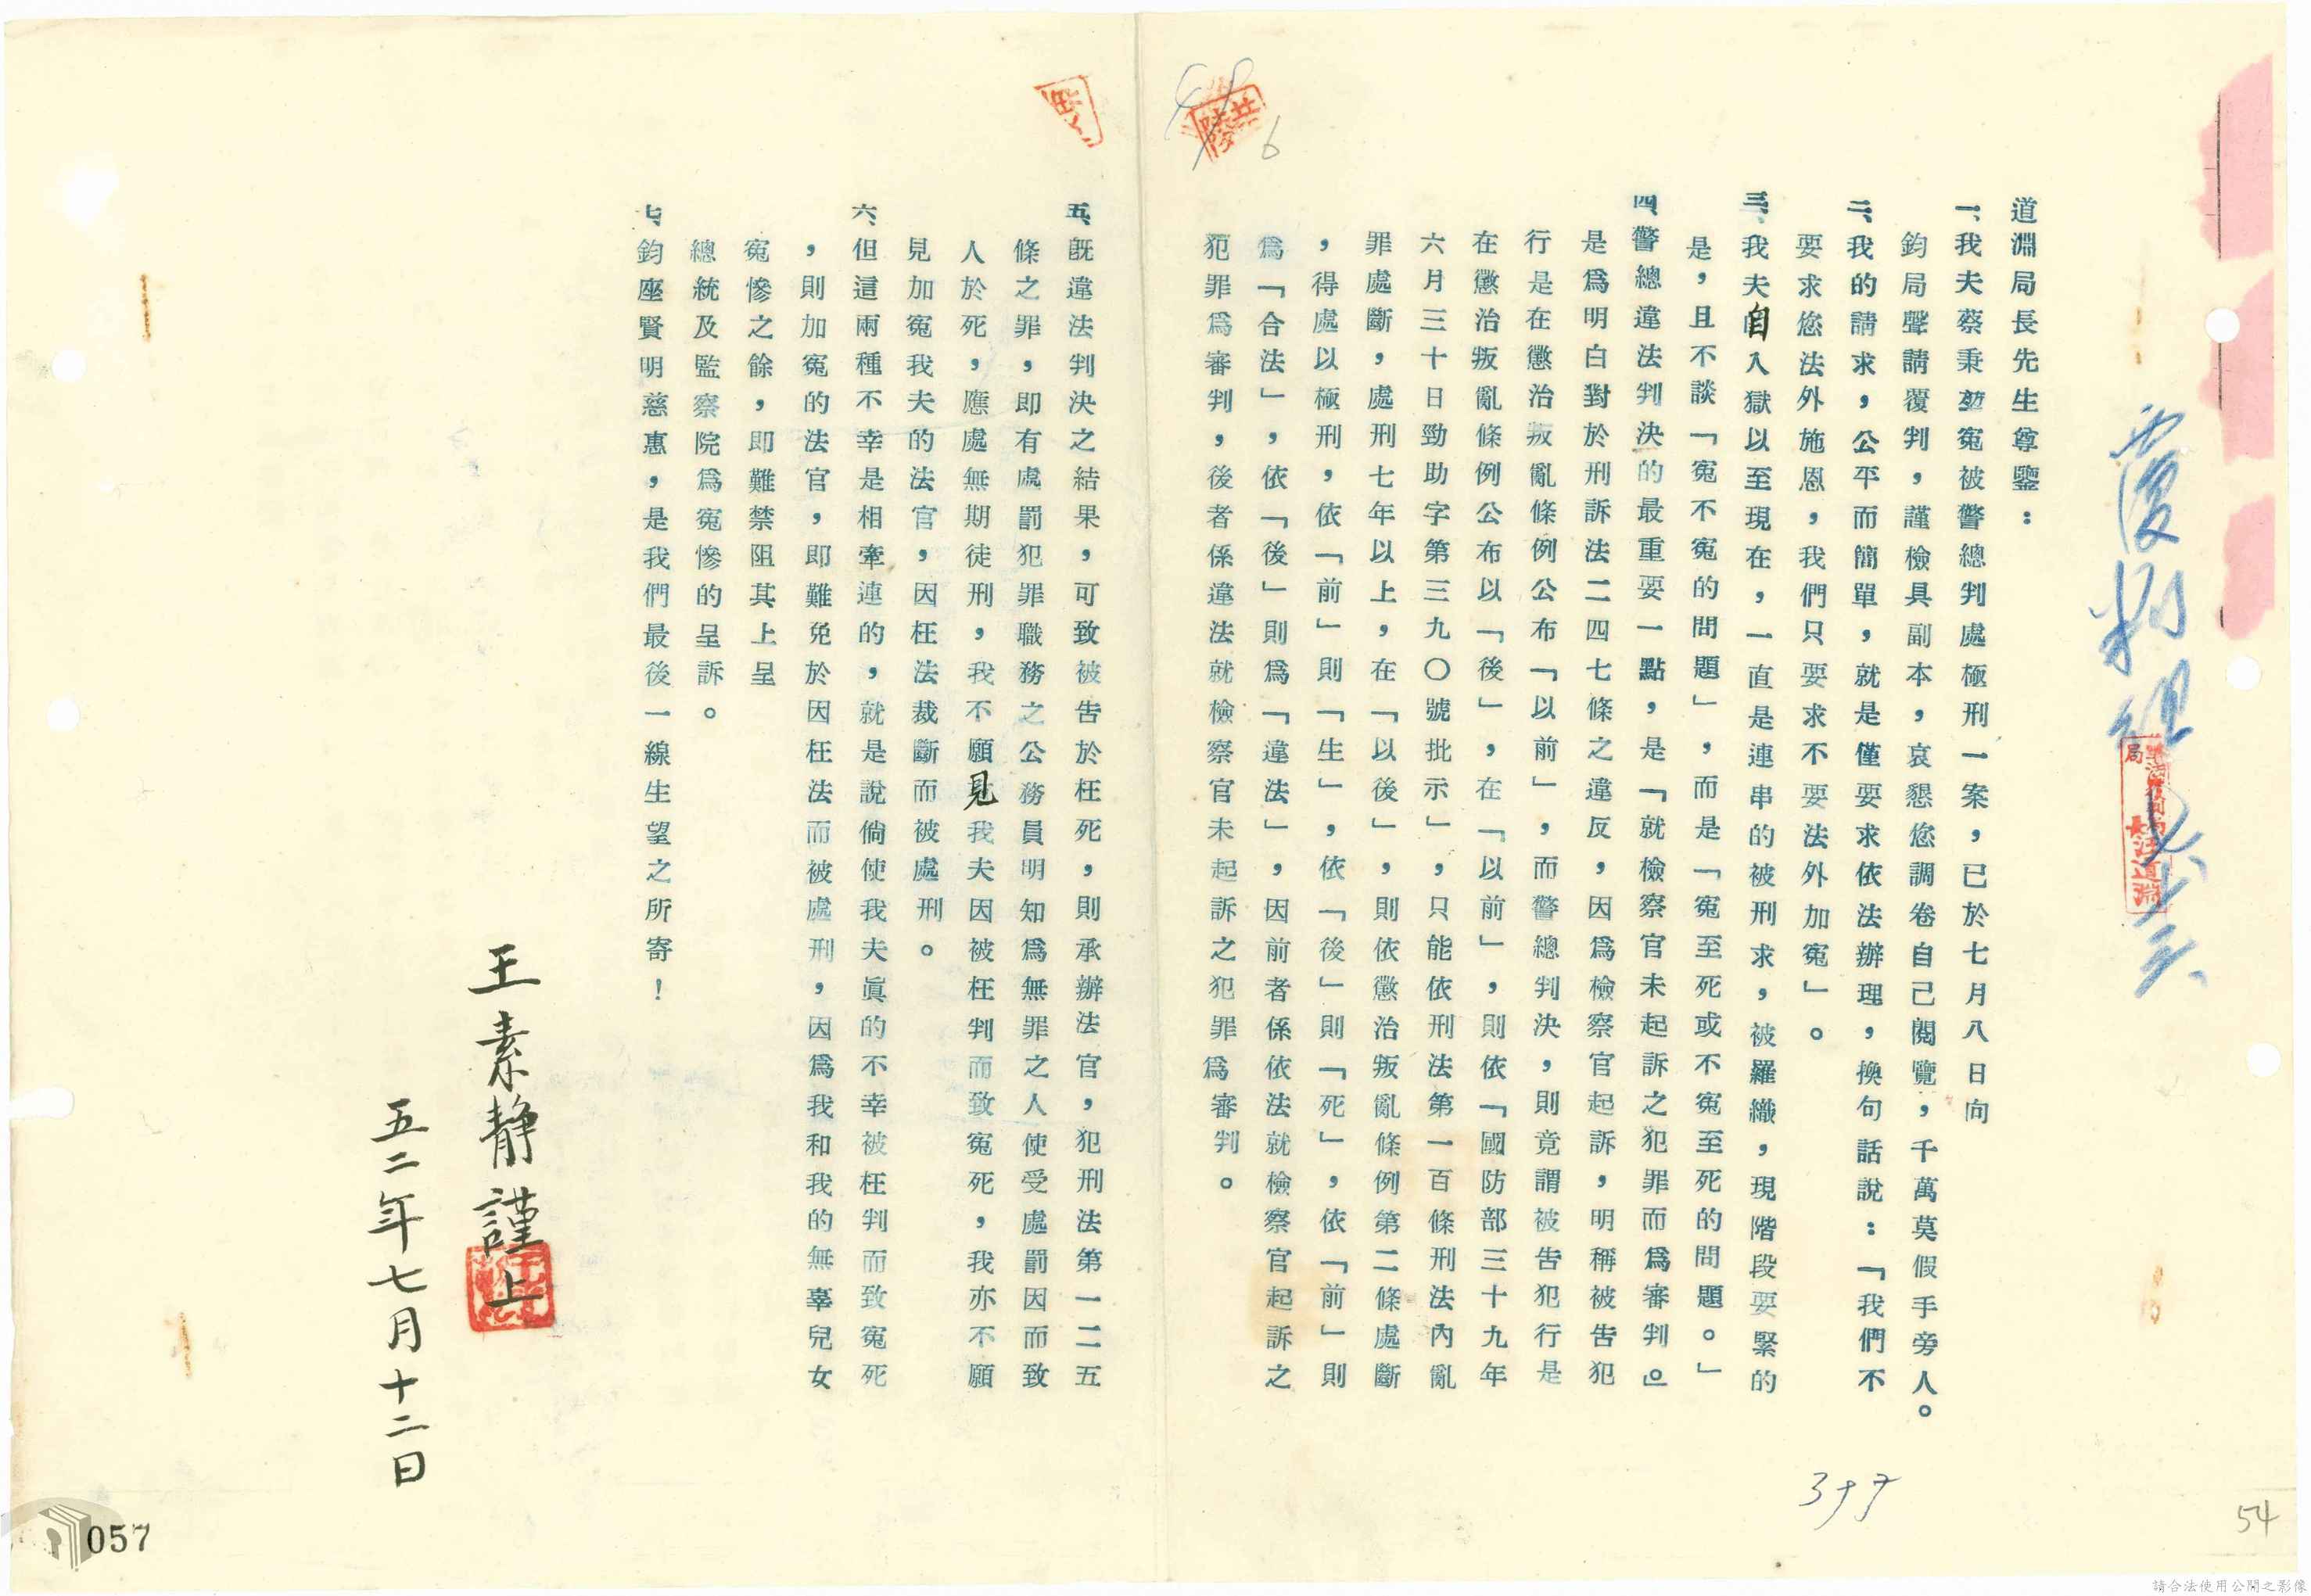 覆判
道淵局長先生尊鑒：
一、我夫蔡秉堃寃被警總判處極刑一案，已於七月八日向
鈞局聲請覆判，謹檢具副本，哀懇您調卷自己閱覽，千萬莫假手旁人。
二、我的請求，公平而簡單，就是僅要求依法辦理，換句話說：「我們不
要求您法外施恩，我們只要求不要法外加寃」。
三、我夫自入獄以至現在，一直是連串的被刑求，被羅織，現階段要緊的
是，且不談「寃不寃的問題」，而是「寃至死或不寃至死的問題。」
四、警總違法判決的最重要一點，是「就檢察官未起訴之犯罪而爲審判。」
是爲明白對於刑訴法二四七條之違反，因爲檢察官起訴，明稱被告犯
行是在懲治叛亂條例公布「以前」，而警總判決，則竟謂被告犯行是
在懲治叛亂條例公布以「後」，在「以前」，則依「國防部三十九年
六月三十日勁助字第三九〇號批示」，只能依刑法第一百條刑法內亂
罪處斷，處刑七年以上，在「以後」，則依懲治叛亂條例第二條處斷
，得處以極刑，依「前」則「生」，依「後」則「死」，依「前」則
爲「合法」，依「後」則爲「違法」，因前者係依法就檢察官起訴之
犯罪爲審判，後者係違法就檢察官未起訴之犯罪爲審判。
五、旣違法判決之結果，可致被告於枉死，則承辦法官，犯刑法第一二五
條之罪，即有處罰犯罪職務之公務員明知爲無罪之人使受處罰因而致
人於死，應處無期徒刑，我不願見我夫因被枉判而致寃死，我亦不願
見加寃我夫的法官，因枉法裁斷而被處刑。
六、但這兩種不幸是相牽連的，就是說倘使我夫眞的不幸被枉判而致寃死
，則加寃的法官，即難免於因枉法而被處刑，因爲我和我的無辜兒女
寃慘之餘，即難禁阻其上呈
總統及監察院爲寃慘的呈訴。
七、鈞座賢明慈惠，是我們最後一線生望之所寄！
王素靜謹上
五二年七月十二日
6
397
54
057
請合法使用公開之影像